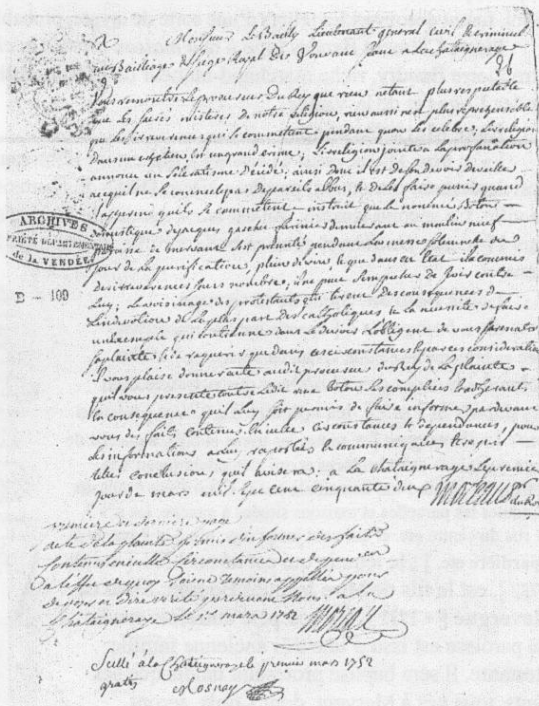 A
Monsieur Le Bailly Lieutenant general civil & criminel
au Bailliage & siege Royal des Vouvant seant a La chataigneraye
26
Vous remontre Le procureur Du Roy que rien netant plus respectable
que Les sacrés misteres de notre Religion, rien aussi nest plus reprehensible
que Les irreverences qui se commettent pendant quon Les celebre, Lirreligion
dans un chretien est un grand crime; Lirreligion jointe a La profanation
annonce un scelerat decidé; ainsi donc il est de son devoir de veiller
a ce quil ne se commette pas de pareils abus, & de Les faire punir quand
il apprend quils se commettent - instruit que Le nommé Boton
domestique de jacques gaschet farinier demeurant au moulin neuf
paroisse de mervant sest presenté pendant La messe solemnelle du
jour de La purification, plein de vin, & que dans cet Etat il a commis
des irreverences sans nombre,
Luy; Le voisinage des protestants qui tirent des consequences de
Lindevotion de La plus part des catholiques & La necessité de faire
un exemple qui contienne dans Le devoir Lobligent de vous faire
sa plainte & de requerir que dans ces circonstances & par ces considerations
Il vous plaise donner acte audit procureur du Roy de La plainte
quil vous presente contre Ledit Boton Ses complices & adherants
En consequence quil Luy soit permis de faire informer pardevant
vous des faits contenus en icelle circonstances & dependances, pour
Les informations a Luy raportées & communiquées Etre pris
telles conclusions quil avisera; a La chataigneraye Le premier
jour de mars mil sept cent cinquante deux Moreau pr du Roy
premiere et derniere page
acte de la plainte permis d'informer des faits
contenus en icelle circonstances et dependances
a l'effet de quoy seront temoins appellés pour
deposer et dire verité pardevant nous. a la
Chataigneraye le 1er mars 1752 Moreau
Scellé a la Chataigneraye le premier mars 1752
gratis Rosnay
ARCHIVES
PROPRIÉTÉ DÉPARTEMENTALE
de la VENDÉE
B - 109